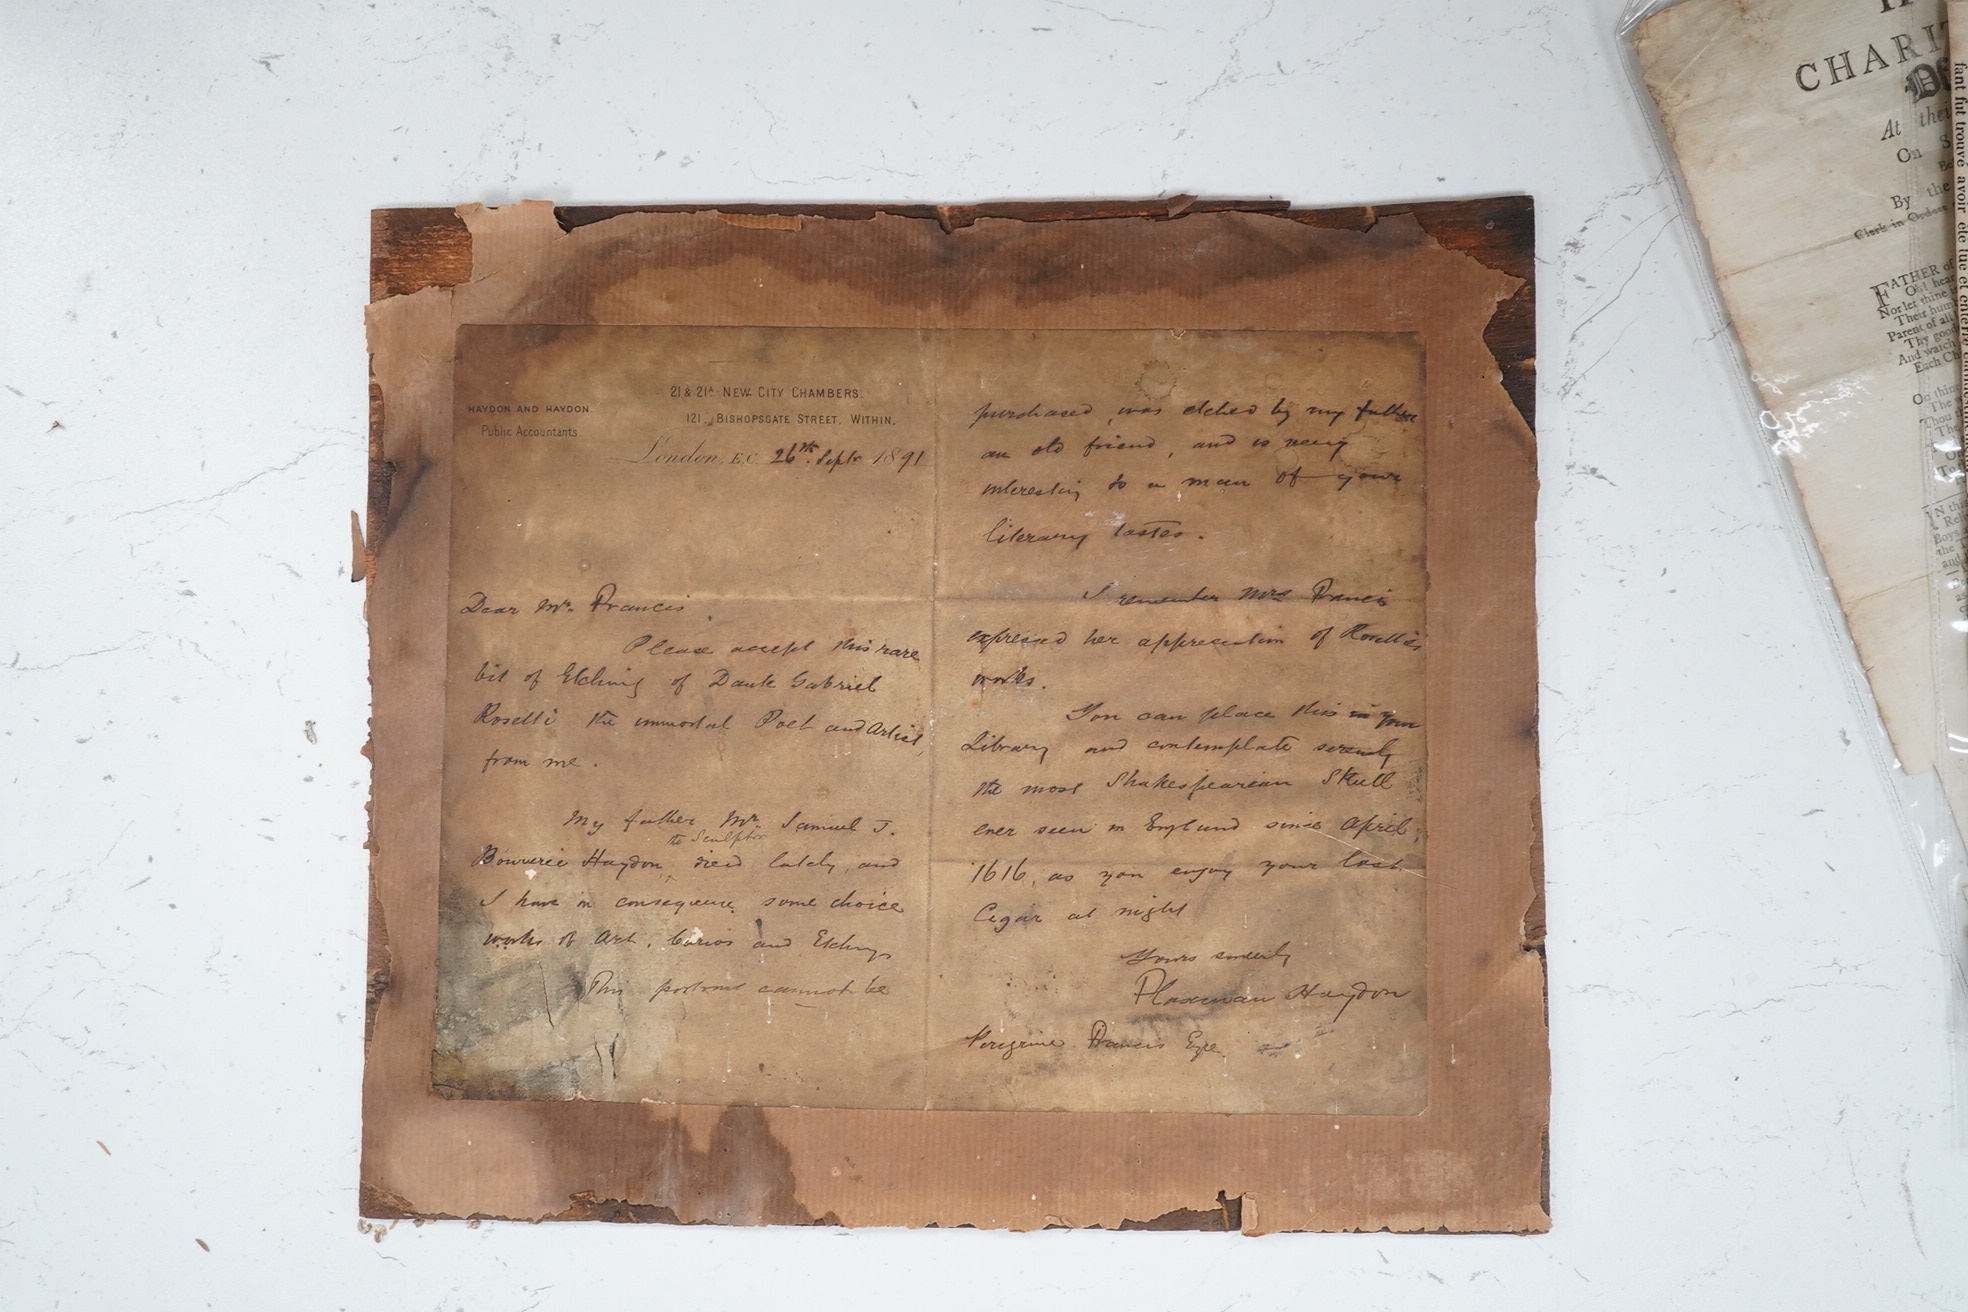 HAYDON AND HAYDON
Public Accountants
21 & 21A NEW CITY CHAMBERS.
121, BISHOPSGATE STREET, WITHIN,
London, E.C. 26th Septr 1891
Dear Mr. Francis
Please accept this rare
bit of Etching of Dante Gabriel
Rosetti the immortal Poet and Artist,
from me.
My father Mr. Samuel J.
the Sculptor
Bouverie Haydon, died lately, and
I have in consequence, some choice
works of Art, Curios and Etchings
This portrait cannot be
purchased, was etched by my father
an old friend, and is very
interesting to a man of your
literary tastes.
I remember Mrs Francis
expressed her appreciation of Rosetti's
works.
You can place this in your
Library and contemplate serenely
the most Shakespearian Skull
ever seen in England since April,
1616, as you enjoy your last
Cigar at night
Yours sincerely
Flaxman Haydon
Peregrine Francis Esqre
CHARIT
At the
On S
By the
Clerk in Orders
FATHER of
Oh! hear
Nor let thine
Their hum
Parent of all
Thy good
And watch
Each Ch
On thin
The
Thou
fant fut trouvé avoir été tué et enterré